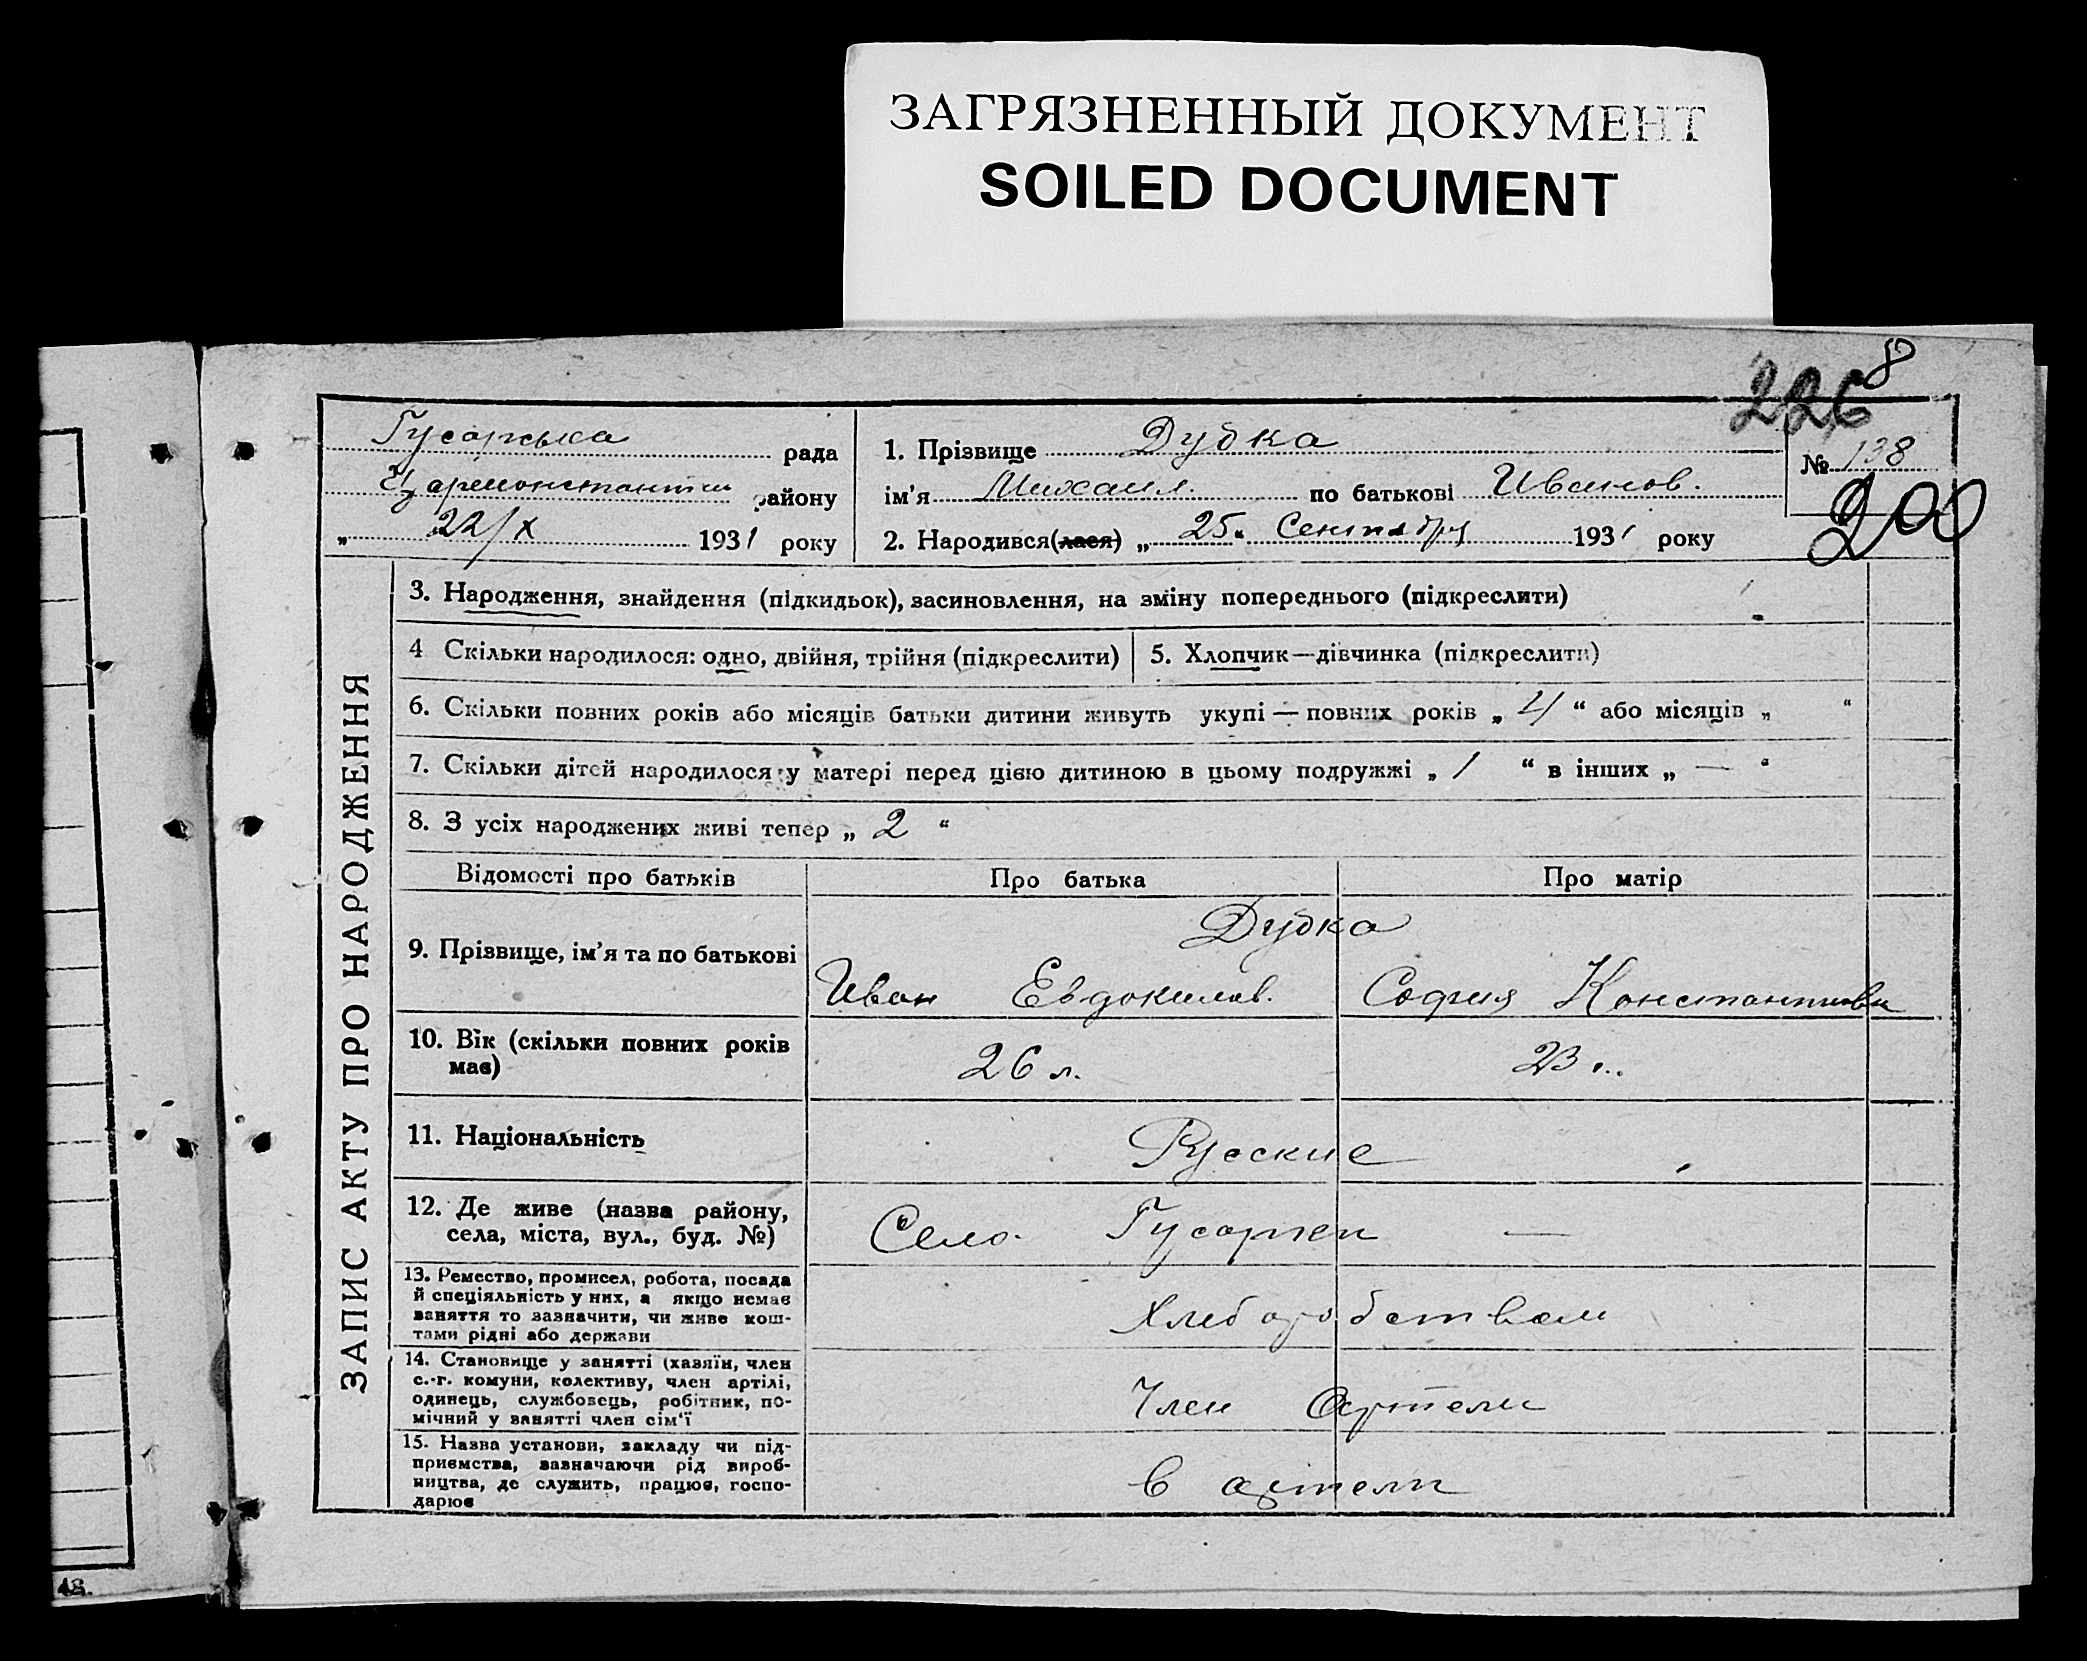 ЗАГРЯЗНЕННЫЙ ДОКУМЕНТ
SOILED DOCUMENT
226 8
Гусарська рада
Царконстантин району
„ 22/X 1931 року
1. Прізвище Дубка
ім'я Михаил. по батькові Иванов.
2. Народився(лася) „ 25 “ Сентября 1931 року
№ 138
200
ЗАПИС АКТУ ПРО НАРОДЖЕННЯ
3. Народження, знайдення (підкидьок), засиновлення, на зміну попереднього (підкреслити)
4 Скільки народилося: одно, двійня, трійня (підкреслити)
5. Хлопчик—дівчинка (підкреслити)
6. Скільки повних років або місяців батьки дитини живуть укупі — повних років „ 4 “ або місяців „ “
7. Скільки дітей народилося у матері перед цією дитиною в цьому подружжі „ 1 “ в інших „ — “
8. З усіх народжених живі тепер „ 2 “
Відомості про батьків Про батька Про матір
9. Прізвище, ім'я та по батькові
Дубка
Иван Евдокимов. София Константиновн
10. Вік (скільки повних років
має)
26 л. 23 г.
11. Національність
Русские
12. Де живе (назва району,
села, міста, вул., буд. №)
Село Гусарки —
13. Ремество, промисел, робота, посада
й спеціяльність у них, а якщо немає
заняття то зазначити, чи живе кош-
тами рідні або держави
Хлеборобством
14. Становище у занятті (хазяїн, член
с.-г. комуни, колективу, член артілі,
одинець, службовець, робітник, по-
мічний у занятті член сім'ї
Член Артели
15. Назва установи, закладу чи під-
приємства, зазначаючи рід вироб-
ництва, де служить, працює, госпо-
дарює
в артели
48.